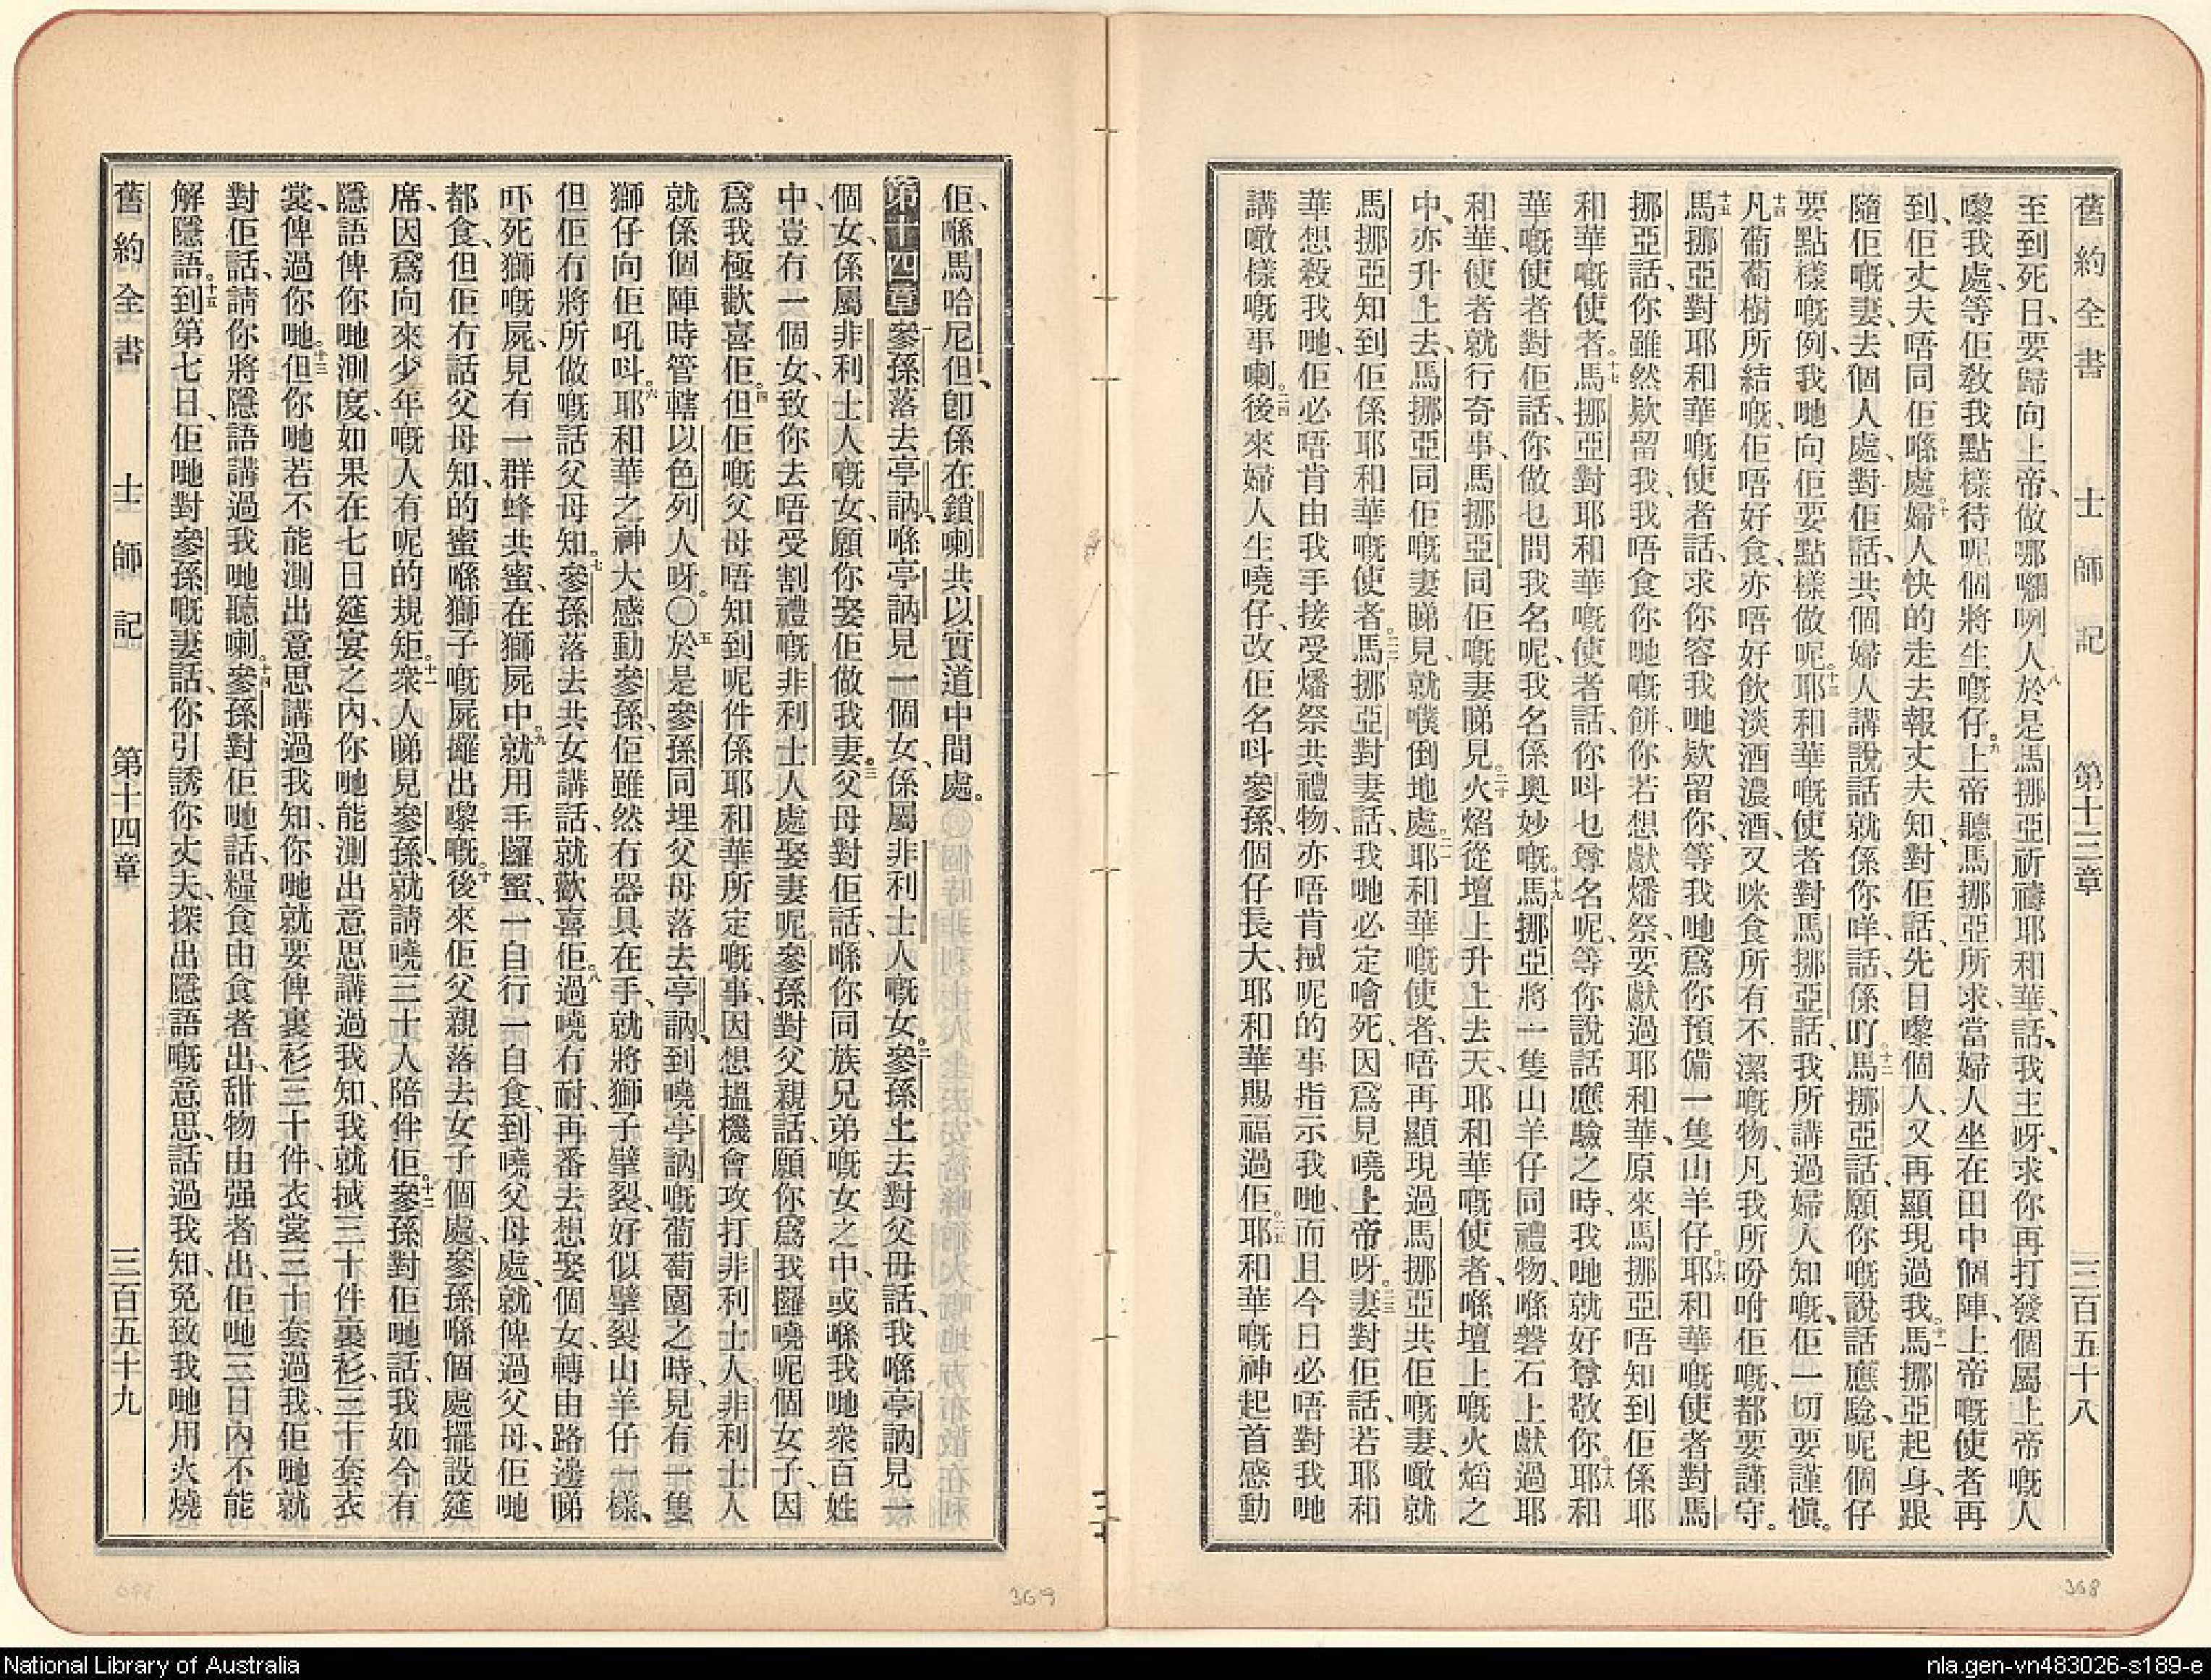 舊約全書 士師記 第十三章 三百五十八
至到死日、要歸向上帝、做哪㗎咧人八於是馬挪亞祈禱耶和華、話、我主呀、求你再打發個屬上帝嘅人
嚟我處、等佢教我點樣待呢個將生嘅仔。九上帝聽馬挪亞所求、當婦人坐在田中個陣、上帝嘅使者再
到、佢丈夫唔同佢喺處、十婦人快的走去報丈夫知、對佢話、先日嚟個人、又再顯現過我。十一馬挪亞起身、跟
隨佢嘅妻、去個人處、對佢話、共個婦人講說話就係你咩、話、係吖。十二馬挪亞話、願你嘅說話應驗、呢個仔
要點樣嘅例、我哋向佢要點樣做呢。十三耶和華嘅使者對馬挪亞話、我所講過婦人知嘅、佢一切要謹慎。
十四凡葡萄樹所結嘅、佢唔好食、亦唔好飲淡酒濃酒、又咪食所有不潔嘅物、凡我所吩咐佢嘅、都要謹守。
十五馬挪亞對耶和華嘅使者話、求你容我哋欵留你、等我哋爲你預備一隻山羊仔。十六耶和華嘅使者對馬
挪亞話、你雖然欵留我、我唔食你哋嘅餅、你若想獻燔祭、要獻過耶和華、原來馬挪亞唔知到佢係耶
和華嘅使者。十七馬挪亞對耶和華嘅使者話、你呌乜尊名呢、等你說話應驗之時、我哋就好尊敬你。十八耶和
華嘅使者對佢話、你做乜問我名呢、我名係奧妙嘅。十九馬挪亞將一隻山羊仔同禮物、喺磐石上獻過耶
和華、使者就行奇事、馬挪亞同佢嘅妻睇見。二十火焰從壇上升上去天、耶和華嘅使者、喺壇上嘅火焰之
中、亦升上去、馬挪亞同佢嘅妻睇見、就噗倒地處。二一耶和華嘅使者、唔再顯現過馬挪亞共佢嘅妻、噉就
馬挪亞知到佢係耶和華嘅使者。二二馬挪亞對妻話、我哋必定噲死、因爲見嘵上帝呀。二三妻對佢話、若耶和
華想殺我哋、佢必唔肯由我手接受燔祭共禮物、亦唔肯摵呢的事指示我哋、而且今日必唔對我哋
講噉樣嘅事喇。二四後來婦人生嘵仔、改佢名呌參孫、個仔長大、耶和華賜福過佢。二五耶和華嘅神起首感動
佢、喺馬哈尼但、卽係在鎖喇共以實道中間處。
第十四章 一參孫落去亭訥、喺亭訥見一個女、係屬非利士人嘅女。二參孫上去對父母話、我喺亭訥見一
個女、係屬非利士人嘅女、願你娶佢做我妻。三父母對佢話、喺你同族兄弟嘅女之中、或喺我哋衆百姓
中、豈冇一個女、致你去唔受割禮嘅非利士人處娶妻呢。參孫對父親話、願你爲我攞嘵呢個女子、因
爲我極歡喜佢。四但佢嘅父母唔知到呢件係耶和華所定嘅事、因想搵機會攻打非利士人、非利士人
就係個陣時管轄以色列人呀。〇五於是參孫同埋父母落去亭訥、到嘵亭訥嘅葡萄園之時、見有一隻
獅仔向佢吼呌。六耶和華之神大感動參孫、佢雖然冇器具在手、就將獅子擘裂、好似擘裂山羊仔一樣、
但佢冇將所做嘅話父母知。七參孫落去共女講話、就歡喜佢。八過嘵有耐、再番去想娶個女、轉由路邊睇
吓死獅嘅屍、見有一群蜂共蜜、在獅屍中。九就用手攞蜜、一自行一自食、到嘵父母處、就俾過父母、佢哋
都食、但佢冇話父母知、的蜜喺獅子嘅屍攞出嚟嘅。十後來佢父親落去女子個處、參孫喺個處擺設筵
席、因爲向來少年嘅人有呢的規矩。十一衆人睇見參孫、就請嘵三十人陪伴佢。十二參孫對佢哋話、我如今有
隱語俾你哋測度、如果在七日筵宴之內、你哋能測出意思講過我知、我就摵三十件裏衫、三十套衣
裳、俾過你哋。十三但你哋若不能測出意思講過我知、你哋就要俾裏衫三十件、衣裳三十套過我、佢哋就
對佢話、請你將隱語講過我哋聽喇。十四參孫對佢哋話、糧食由食者出、甜物由强者出、佢哋三日內不能
解隱語。十五到第七日、佢哋對參孫嘅妻話、你引誘你丈夫、探出隱語嘅意思、話過我知、免致我哋用火燒
舊約全書 士師記 第十四章 三百五十九
369
368
National Library of Australia
nla.gen-vn483026-s189-e